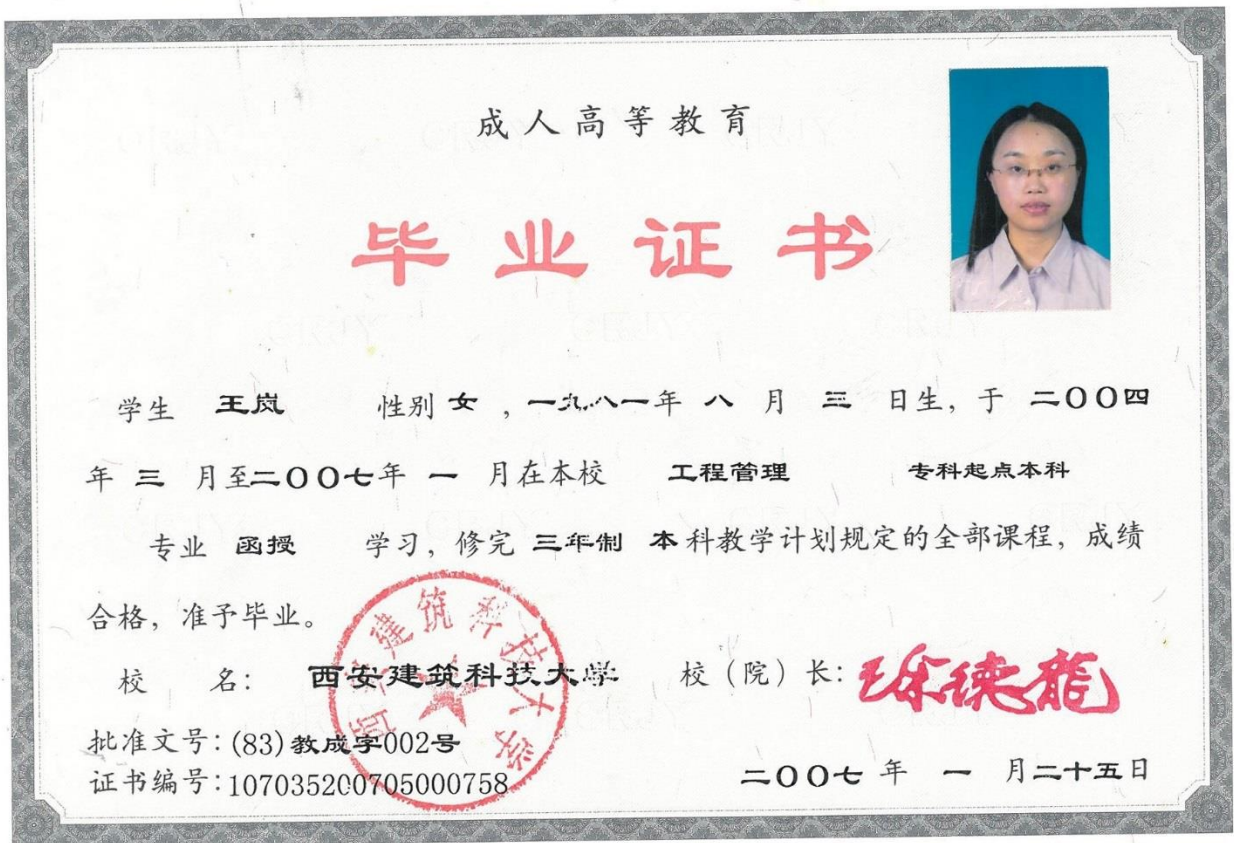 成人高等教育
毕业证书
学生 王岚 性别 女 , 一九八一年 八 月 三 日生, 于 二〇〇四
年 三 月至二〇〇七年 一 月在本校 工程管理 专科起点本科
专业 函授 学习, 修完 三年制 本科教学计划规定的全部课程, 成绩
合格, 准予毕业。
校 名: 西安建筑科技大学 校 (院) 长: 徐德龙
西安建筑科技大学
批准文号: (83) 教成字002号
证书编号: 107035200705000758
二〇〇七 年 一 月二十五日